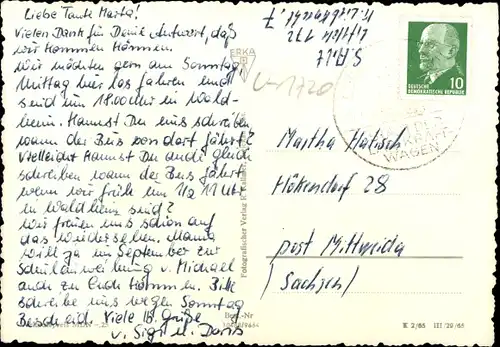 Liebe Tante Marta!
Vielen Dank für Deine Antwort, daß
wir kommen können.
Wir möchten gern am Sonntag
Mittag hier los fahren und
sind um 1800 Uhr in Wald-
heim. Kannst Du uns schreiben
wann der Bus von dort fährt?
Vielleicht kannst Du auch gleich
schreiben wann der Bus fährt
wenn wir früh um 1/2 11 Uhr
in Waldheim sind?
Wir freuen uns schon auf
das Wiedersehen. Mama
will ja im September zur
v. Michael
auch zu Euch kommen. Bitte
schreibe uns wegen Sonntag
Bescheid. Viele lb. Grüße
v. Sigi u. Doris
ERKA
V-1720
Fotografischer Verlag R.
Best.-Nr
S. Alt
10
DEUTSCHE
DEMOKRATISCHE REPUBLIK
WAGEN
Martha Hatisch
Höckendorf 28
post Mittweida
(Sachsen)
K 2/65 III/29/65